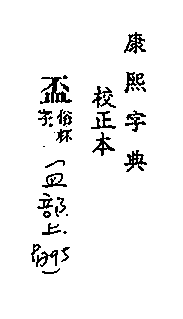 康熙字典
校正本
盃俗杯字.(皿部上.
P1795)